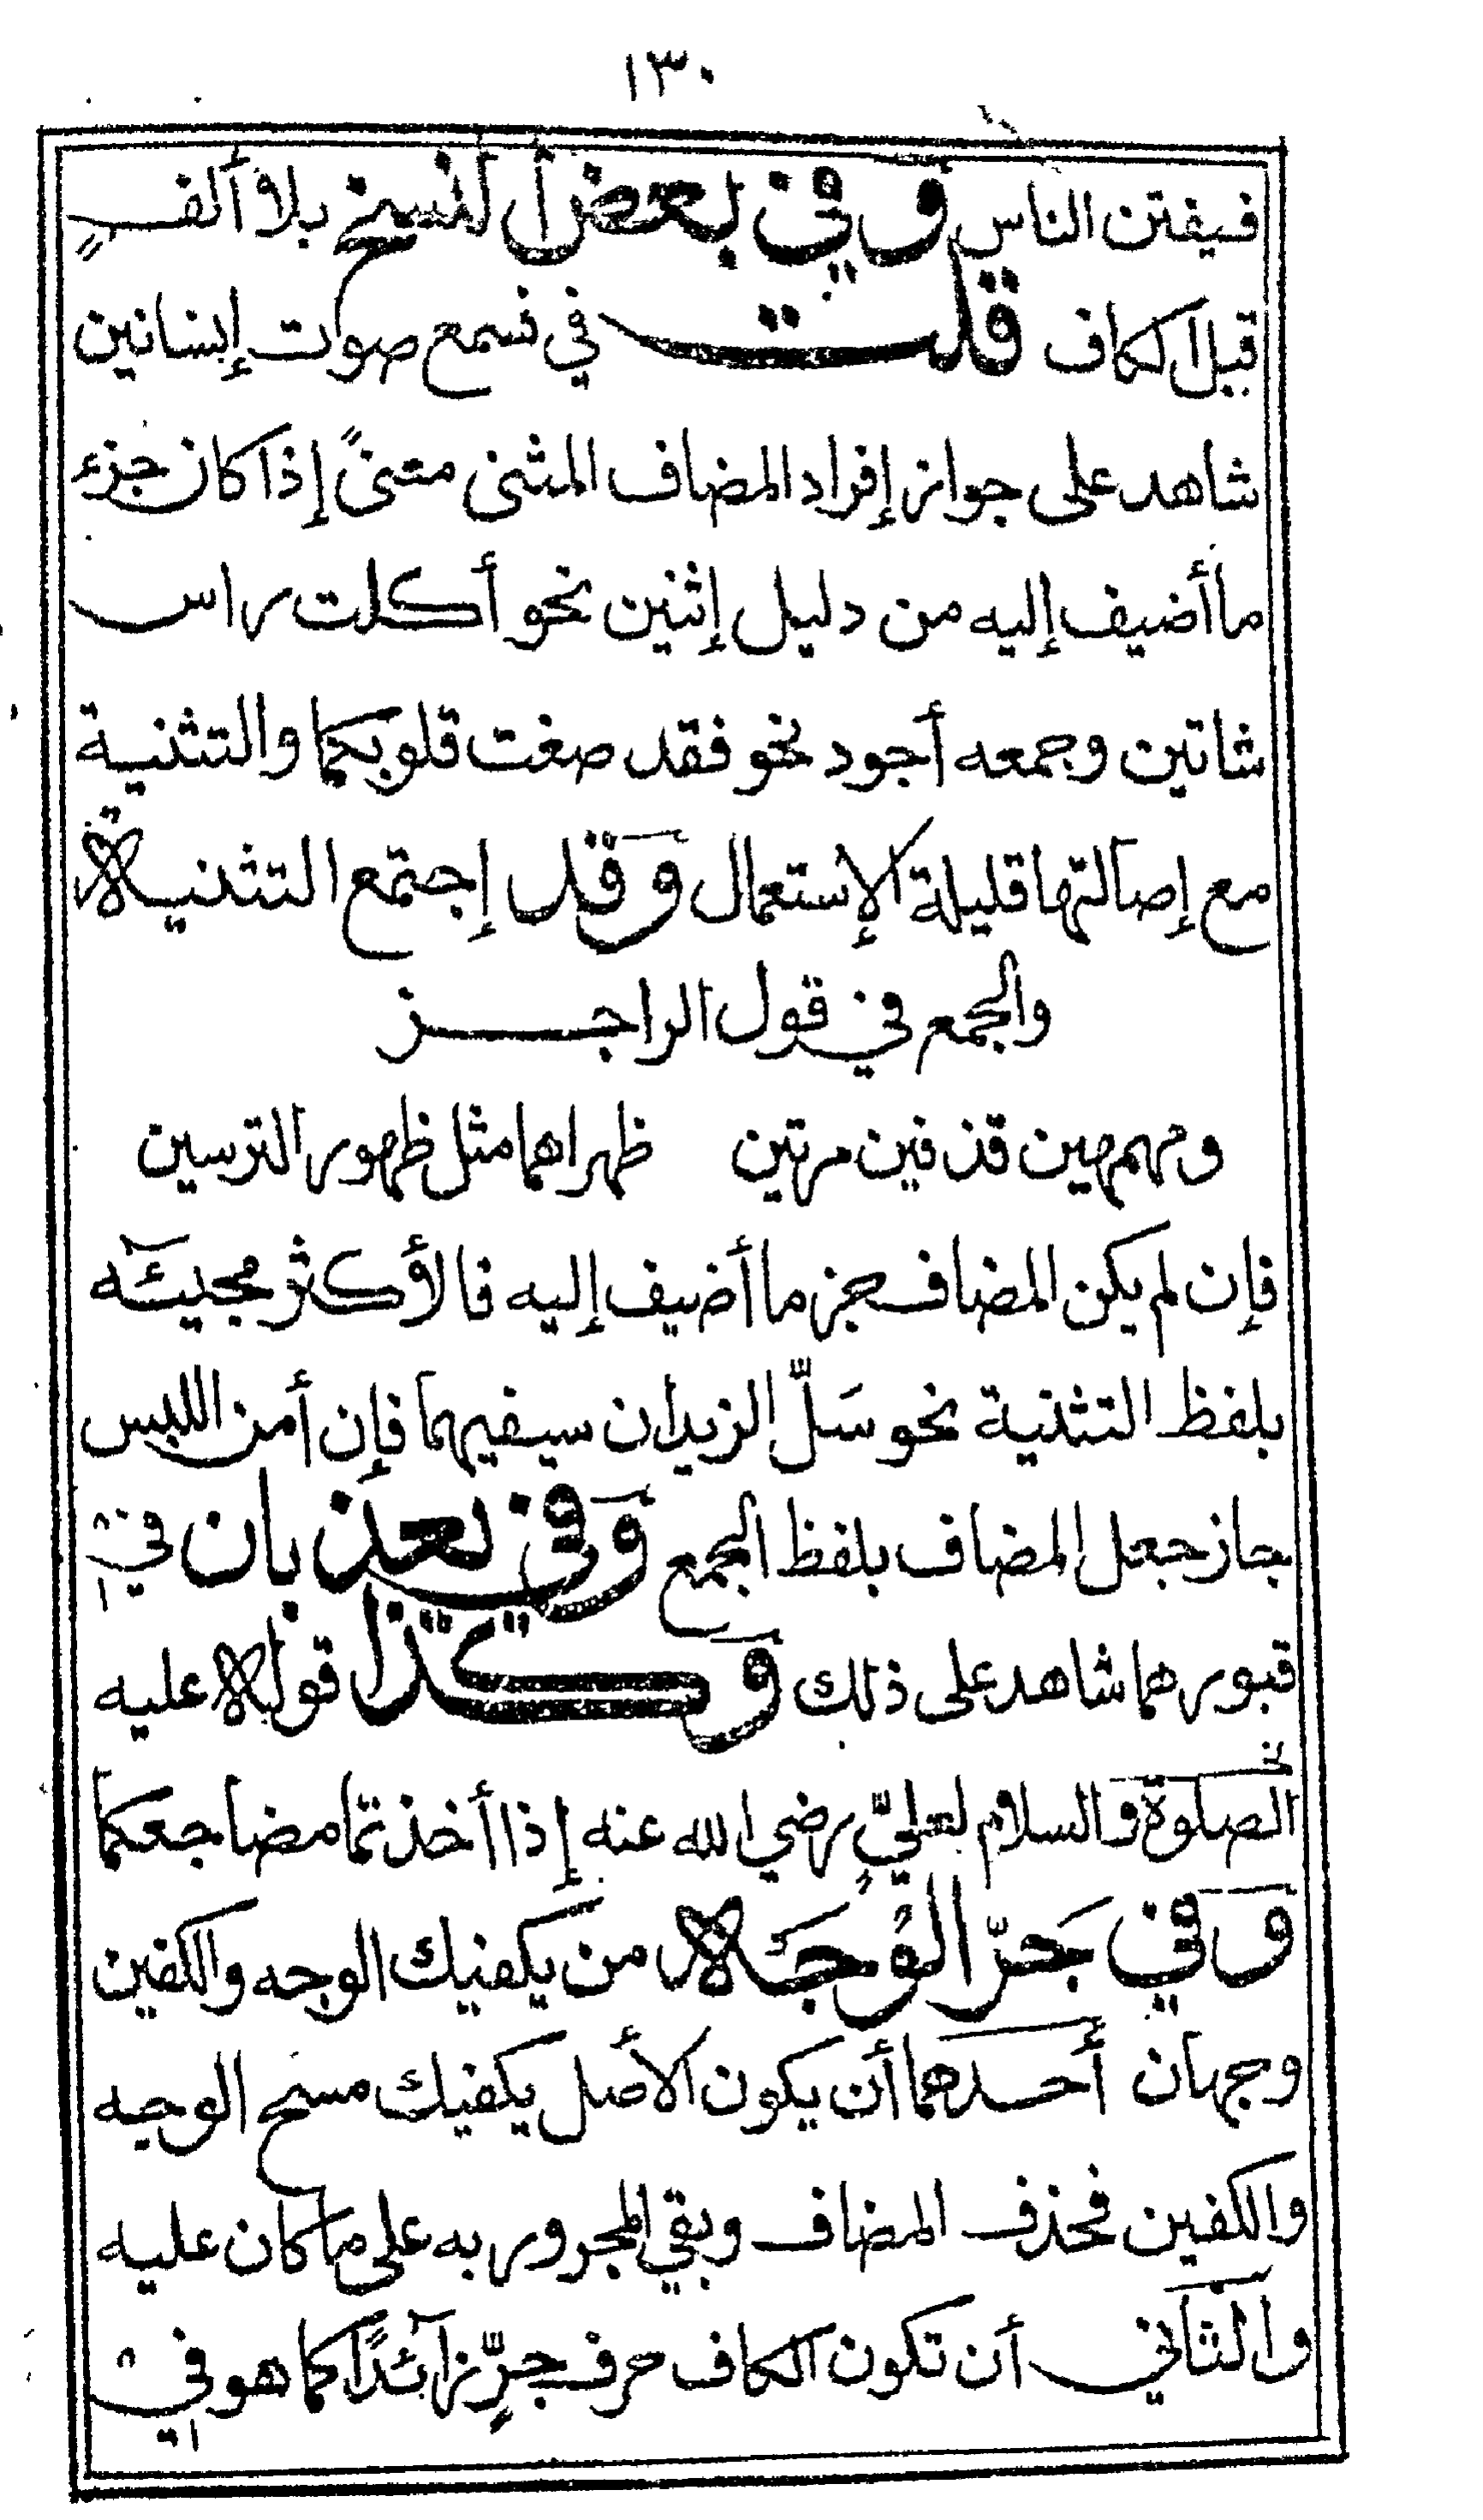 ١٣٠
فيفتن الناس وفي بعض النسخ بلا ألف
قبل الكاف قلت في فسمع صوت إنسانين
شاهد على جواز إفراد المضاف المثنى متنىً إذا كان جزء
ما أضيف إليه من دليل إثنين نحو أكلت راس
شاتين وجمعه أجود نحو فقد صغت قلوبكما والتثنية
مع إصالتها قليلة الإستعمال وقد إجتمع التثنية
والجمع في قول الراجز
ومهمهين قذفين مرتين ظهراهما مثل ظهور الترسين
فإن لم يكن المضاف جز ما أضيف إليه فالأكثر مجيئه
بلفظ التثنية نحو سَلّ الزيدان سيفيهما فإن أمن اللبس
جاز جعل المضاف بلفظ الجمع وفي يعذبان في
قبورهما شاهد على ذلك وكذا قوله عليه
الصلوة والسلام لعليٍّ رضي الله عنه إذا أخذتما مضاجعكما
وفي جَرّ الوُجَه من يكفيك الوجه والكفين
وجهان أحدهما أن يكون الأصل يكفيك مسح الوجه
والكفين فحذف المضاف وبقي المجرور به على ما كان عليه
والثاني أن تكون الكاف حرف جرٍّ زآئدًا كما هو في